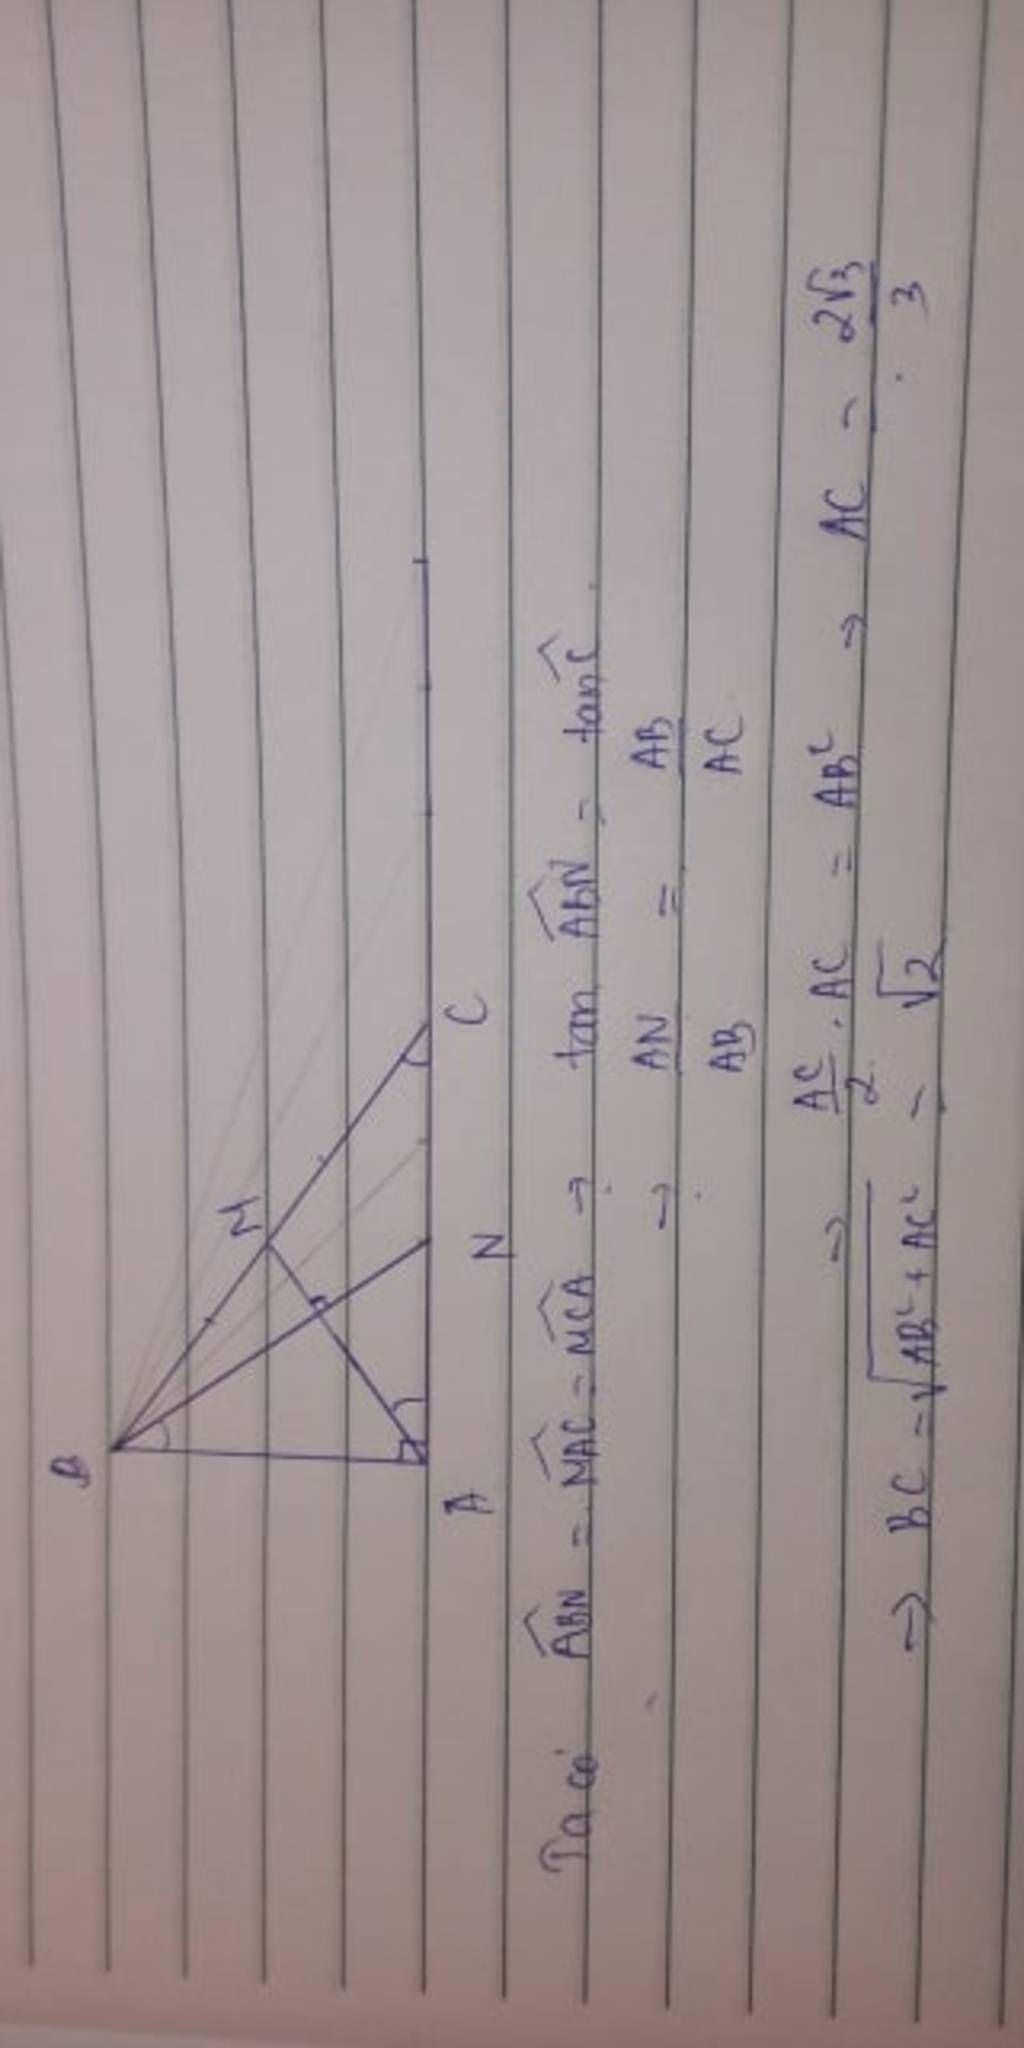 B
M
A
N
C
Ta có ABN̂ = MAĈ = MCÂ → tan ABN̂ = tan Ĉ
→ AN/AB = AB/AC
→ AC/2 . AC = AB² → AC = 2√3/3
→ BC = √(AB² + AC²) = √2